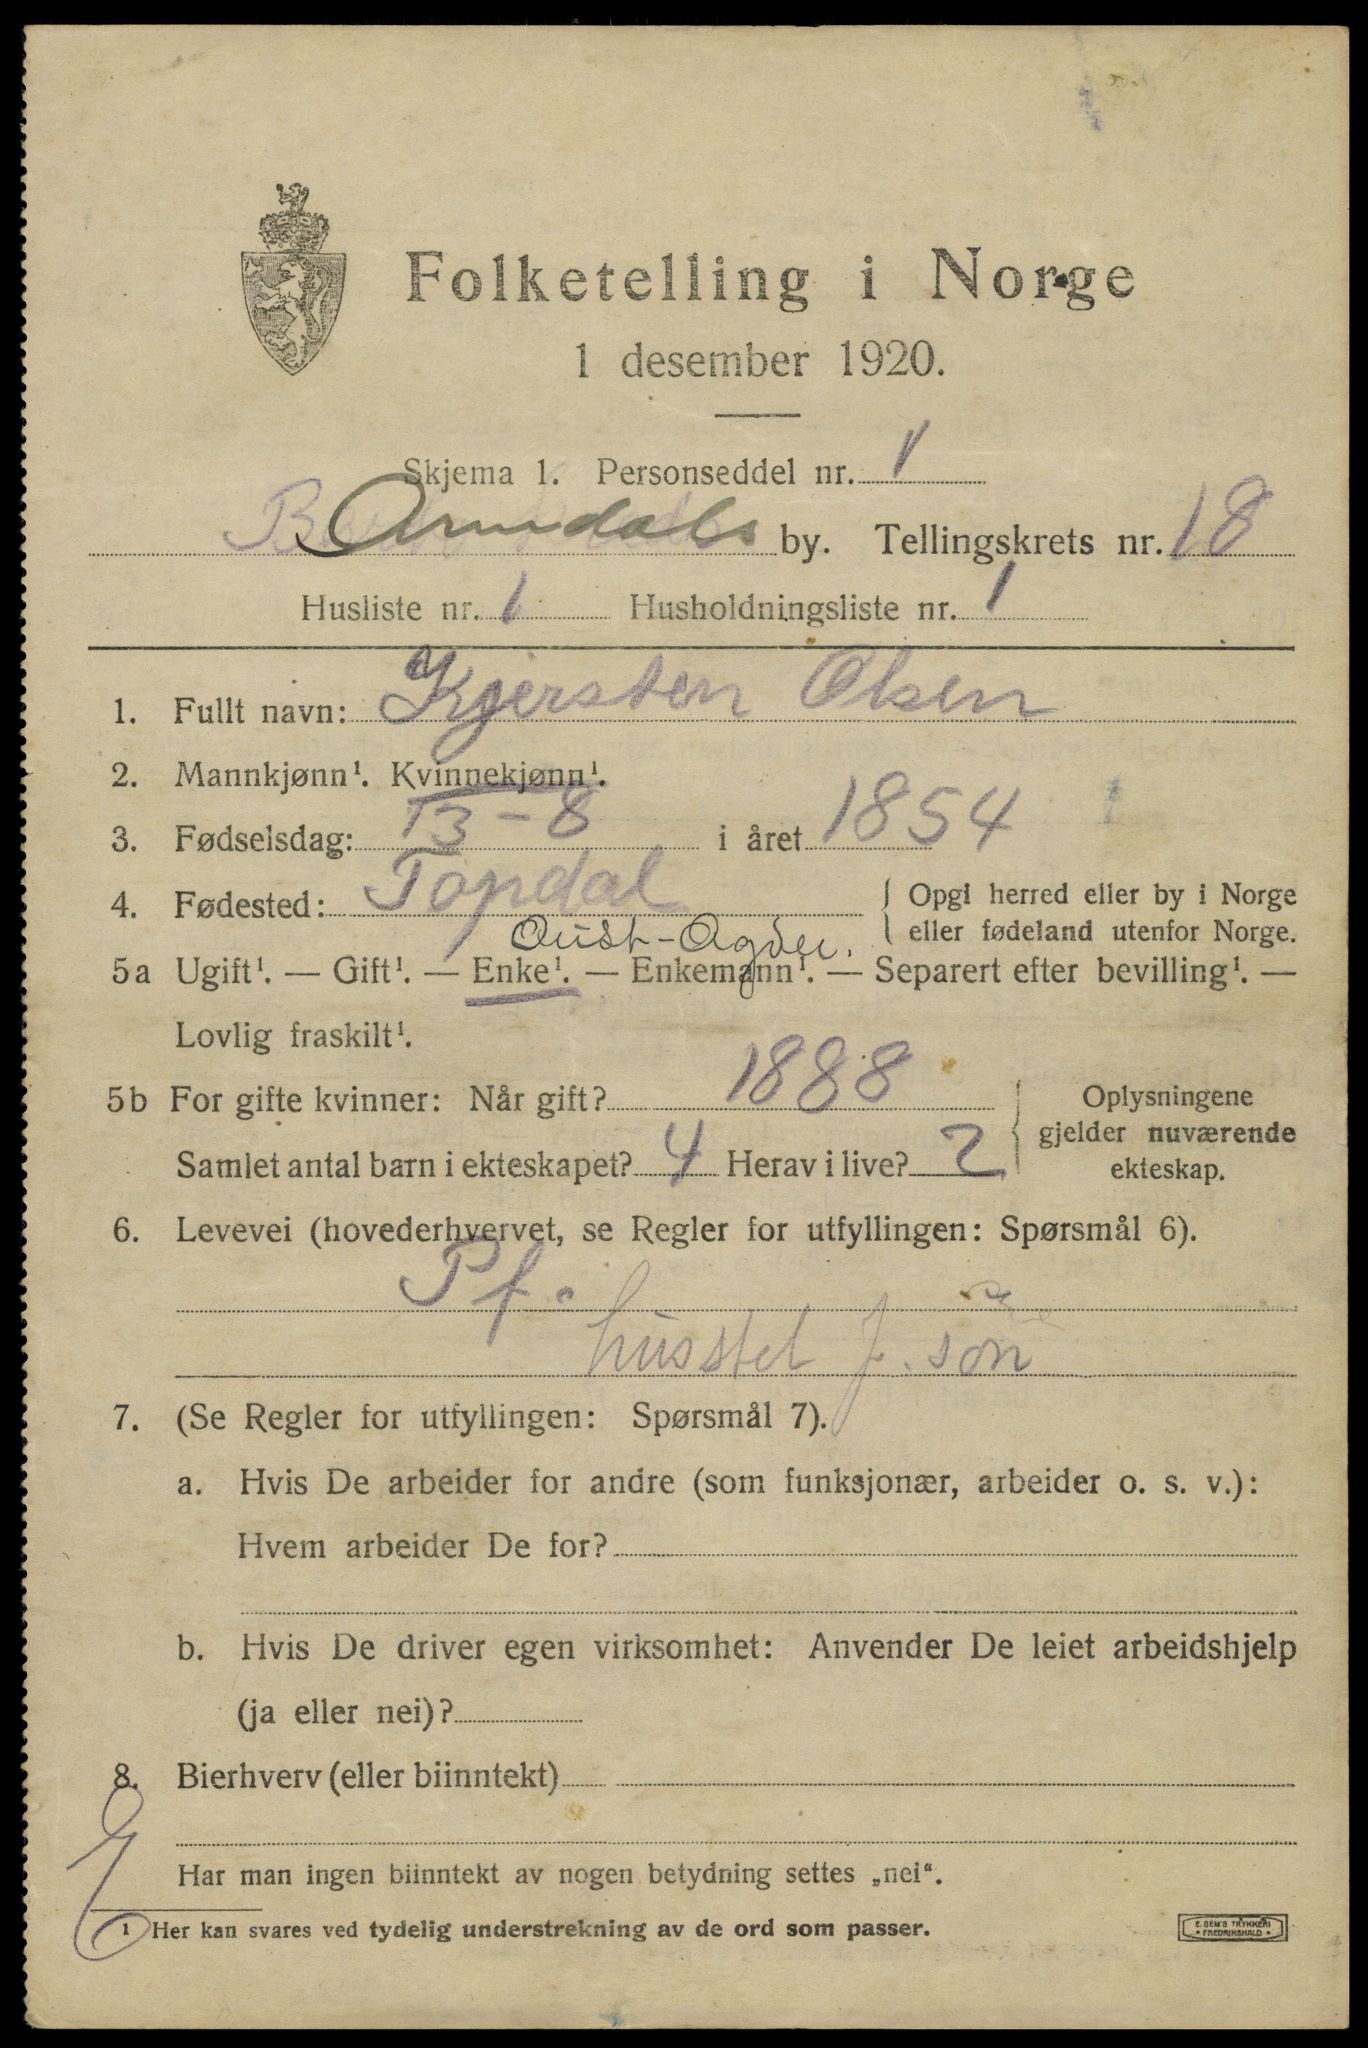 Folketelling i Norge
1 desember 1920.
Skjema 1. Personseddel nr. 1
Arendals by. Tellingskrets nr. 18
Husliste nr. 1 Husholdningsliste nr. 1
1. Fullt navn: Kjersten Olsen
2. Mannkjønn¹. Kvinnekjønn¹.
3. Fødselsdag: 13-8 i året 1854
4. Fødested: Topdal { Opgi herred eller by i Norge
Aust-Agder. eller fødeland utenfor Norge.
5a Ugift¹. — Gift¹. — Enke¹. — Enkemann¹. — Separert efter bevilling¹. —
Lovlig fraskilt¹.
5b For gifte kvinner: Når gift? 1888 { Oplysningene
gjelder nuværende
Samlet antal barn i ekteskapet? 4 Herav i live? 2 ekteskap.
6. Levevei (hovederhvervet, se Regler for utfyllingen: Spørsmål 6).
Pf.
husstel f. søn
7. (Se Regler for utfyllingen: Spørsmål 7).
a. Hvis De arbeider for andre (som funksjonær, arbeider o. s. v.):
Hvem arbeider De for?
b. Hvis De driver egen virksomhet: Anvender De leiet arbeidshjelp
(ja eller nei)?
8. Bierhverv (eller biinntekt)
Har man ingen biinntekt av nogen betydning settes „nei“.
¹ Her kan svares ved tydelig understrekning av de ord som passer.
E. SEM'S TRYKKERI
* FREDRIKSHALD *